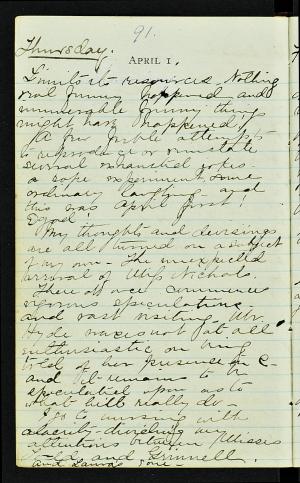 91.
Thursday.
April 1.
Limits its resources. Nothing
real funny happened and
innumerable funny things
might have happened!
A few feeble attempts
to reproduce or reinstate
several exhausted jokes
a dope experiment, some
ordinary laughing and
this was April first!
Egad!
My thoughts and devisings
are all turned on a subject
of my own - The unexpected
arrival of Mrs Nichols.
There at once commence
vigorous speculations
and vast visiting. Mr.
Hyde waxes not at all
enthusiastic on being
told of her presence in C-
and it remains to be
speculated upon as to
what he'll really do -
I go to nursing with
alacrity - dividing my
attentions between Misses
Field and Grinnell.
and Laura's gone -